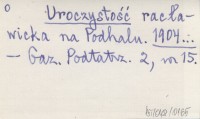 o
Uroczystość racła-
wicka na Podhalu. 1904...
— Gaz. Podtatrz. 2, nr 15.